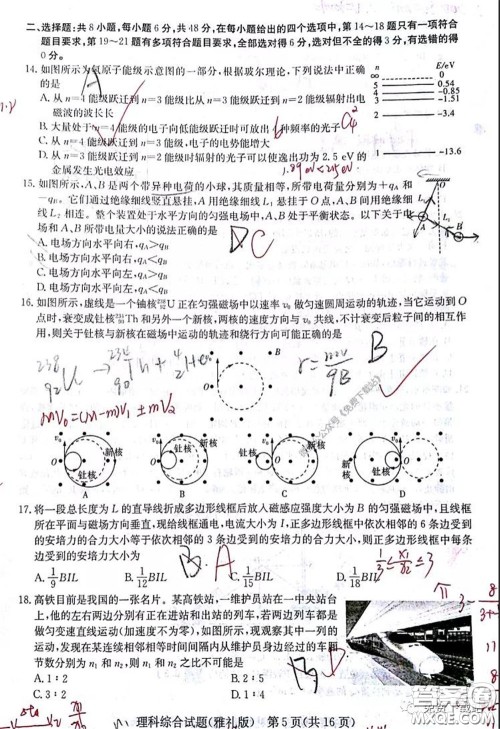 二、选择题:共 8 小题,每小题 6 分,共 48 分,在每小题给出的四个选项中,第 14～18 题只有一项符合
题目要求,第 19～21 题有多项符合题目要求,全部选对得 6 分,选对但不全的得 3 分,有选错的得
0 分。
14. 如图所示为氢原子能级示意图的一部分,根据玻尔理论,下列说法中正确
的是
A
A. 从 n=4 能级跃迁到 n=3 能级比从 n=3 能级跃迁到 n=2 能级辐射出电
磁波的波长长
B. 大量处于 n=4 能级的电子向低能级跃迁时可能发出 种频率的光子
6
C. 从 n=4 能级跃迁到 n=3 能级,电子的电势能增大
D. 从 n=3 能级跃迁到 n=2 能级时辐射的光子可以使逸出功为 2.5 eV 的
金属发生光电效应
n E/eV
∞ 0
5 0.54
4 -0.85
3 -1.51
2 -3.4
1 -13.6
15. 如图所示,A、B 是两个带异种电荷的小球,其质量相等,所带电荷量分别为+qA 和
-qB。它们通过绝缘细线竖直悬挂,A 用绝缘细线 L1 悬挂于 O 点,A、B 间用绝缘细
线 L2 相连。整个装置处于水平方向的匀强电场中,A、B 处于平衡状态。以下关于电
场和 A、B 所带电量大小的说法正确的是
D C
A. 电场方向水平向右,qA>qB
B. 电场方向水平向右,qA<qB
C. 电场方向水平向左,qA>qB
D. 电场方向水平向左,qA<qB
16. 如图所示,虚线是一个铀核 U 正在匀强磁场中以速率 v0 做匀速圆周运动的轨迹,当它运动到 O
点时,衰变成钍核 Th 和另外一个新核,两核的速度方向与 v0 共线,不计衰变后粒子间的相互作
用,则关于钍核与新核在磁场中运动的轨迹和绕行方向可能正确的是
238 92 U → 234 90 Th + 4 2 He
r=mv/qB
B
mv0=(m-m)V1±mV2
v0 O
钍核 新核
钍核 新核
钍核 新核
钍核 新核
A B C D
17. 将一段总长度为 L 的直导线折成多边形线框后放入磁感应强度大小为 B 的匀强磁场中,且线框
所在平面与磁场方向垂直,现给线框通电,电流大小为 I,正多边形线框中依次相邻的 6 条边受到
的安培力的合力大小等于依次相邻的 3 条边受到的安培力的合力大小,则正多边形线框中每条
边受到的安培力大小为
B. A
A. 1/9 BIL B. 1/12 BIL C. 1/15 BIL D. 1/18 BIL
1/3 ≤ x1/x2 ≤ 3
18. 高铁目前是我国的一张名片。某高铁站,一维护员站在一中央站台
上,他的左右两边分别有正在进站和出站的列车,若两边列车都是
做匀变速直线运动(加速度不为零),如图所示,现观察其中一列的
运动,发现在某连续相邻相等时间间隔内从维护员身边经过的车厢
节数分别为 n1 和 n2,则 n1 和 n2 之比不可能是
A. 1∶2 B. 2∶5
C. 3∶2 D. 4∶1
理科综合试题(雅礼版) 第 5 页(共 16 页)